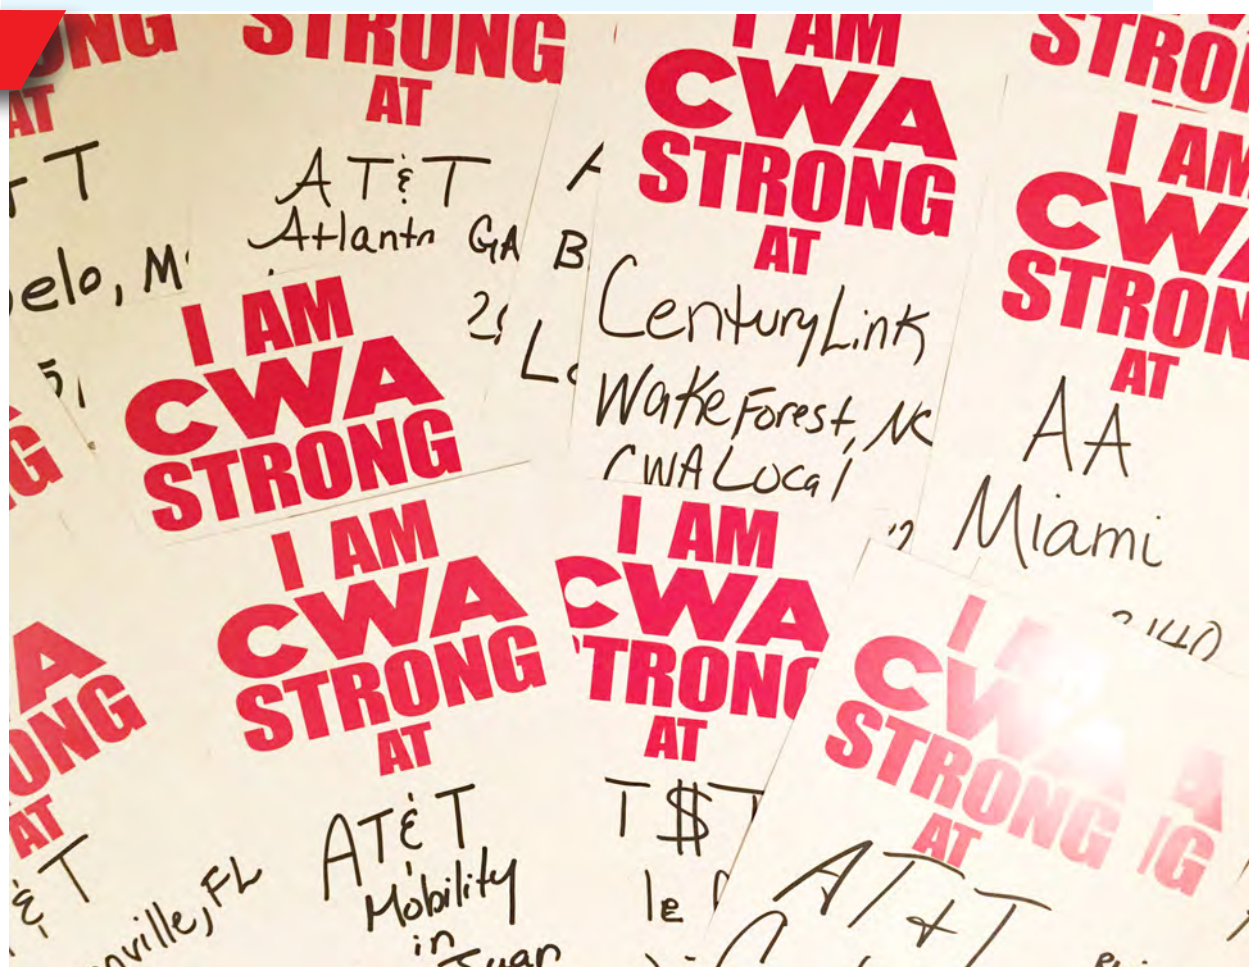 STRONG
AT
AT&T
Atlanta GA
I AM
CWA
STRONG
AT
CenturyLink
Wake Forest, NC
CWA Local
I AM
CWA
STRONG
AT
AA
Miami
I AM
CWA
STRONG
I AM
CWA
STRONG
AT
AT&T
Mobility
in
Juan
I AM
CWA
TRONG
AT
T$T
I AM
CWA
STRONG
AT
AT&T
AT
T
elo, M
AT
&T
nville, FL